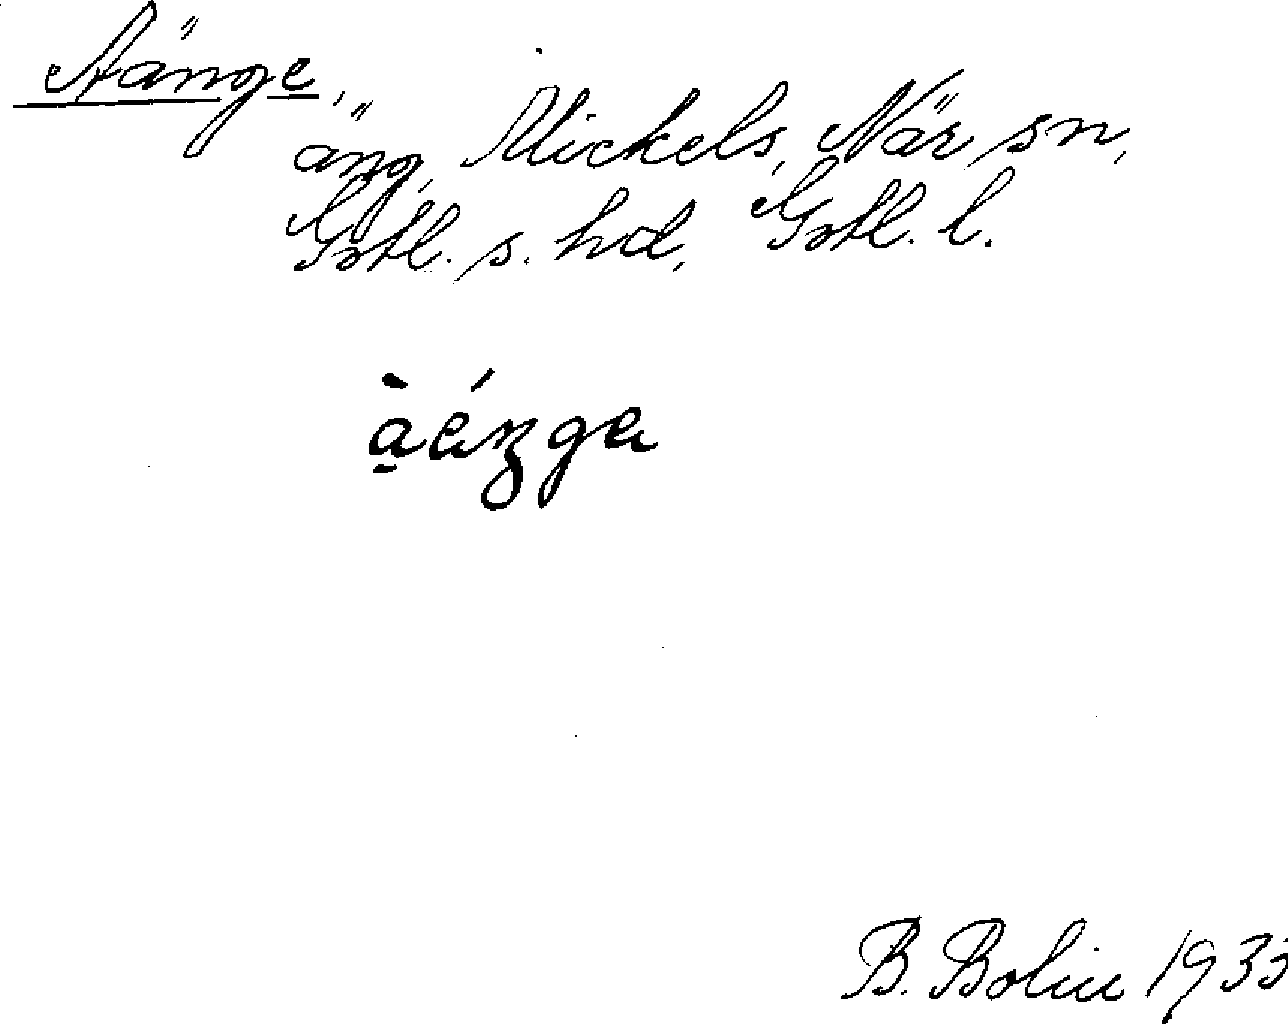 Aänge,
äng, Mickels, När sn,
Gotl. s. hd, Gotl. l.
B. Bolin 1933